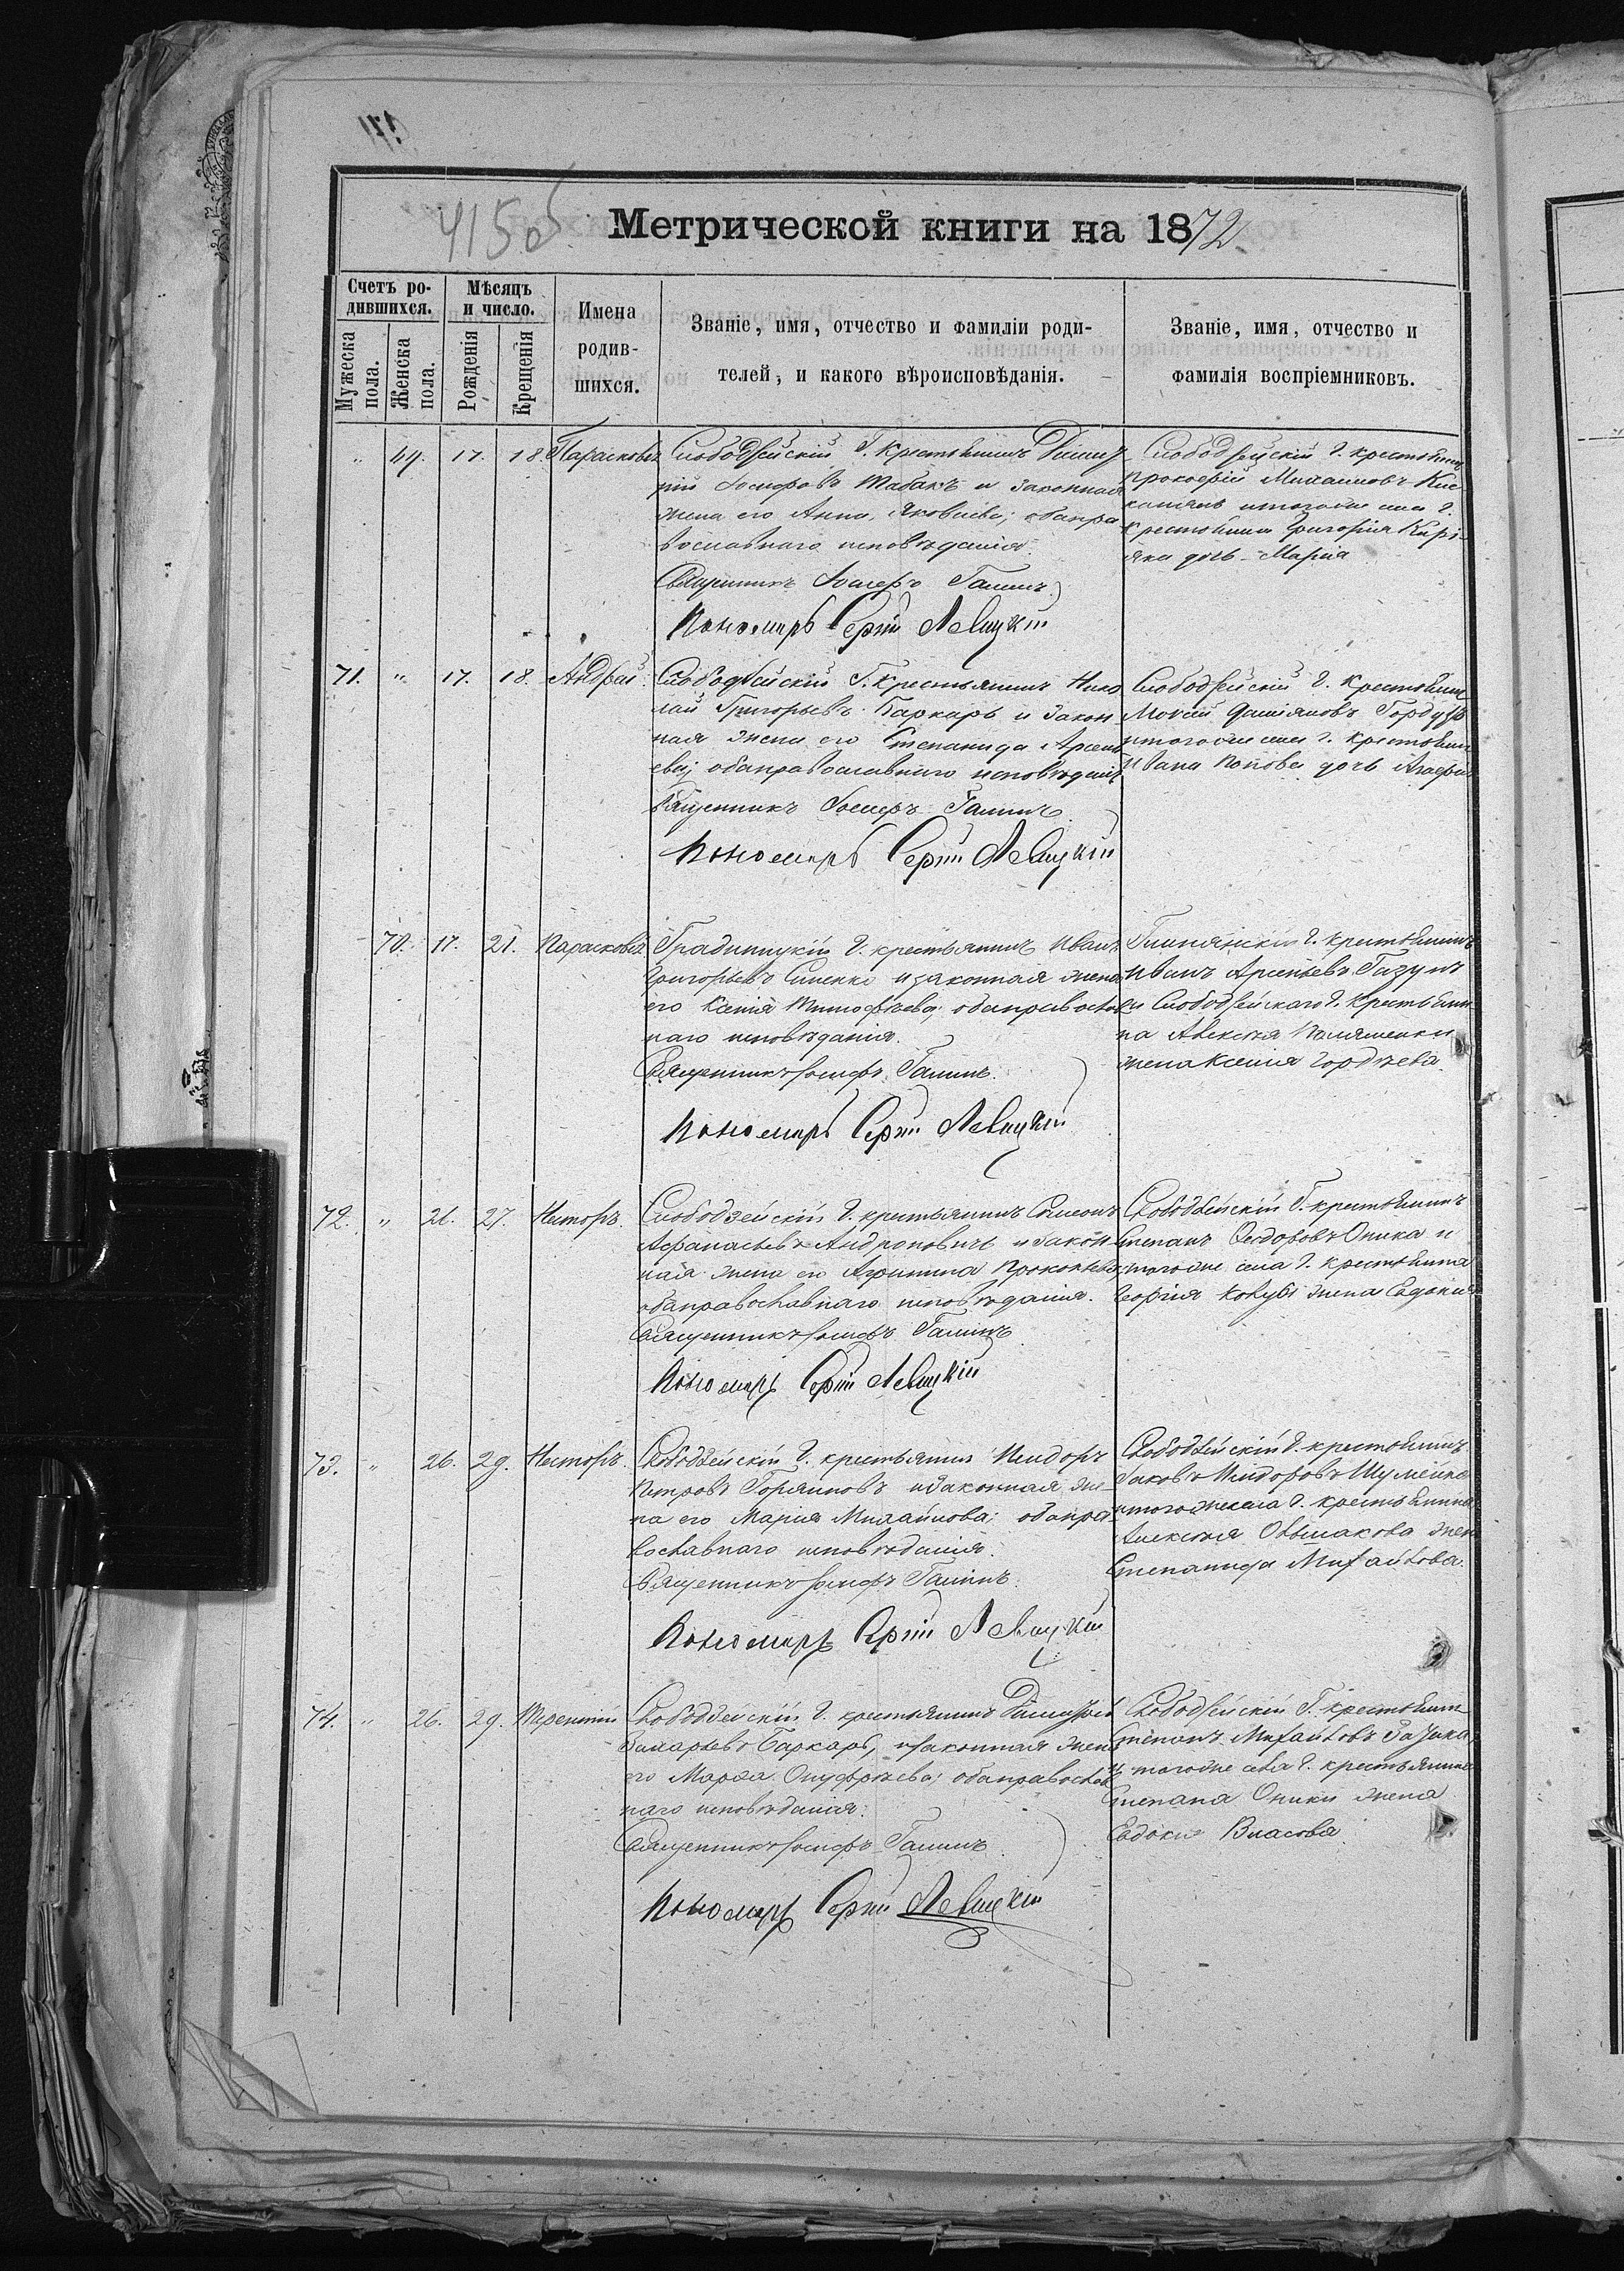 4155
Метрической книги на 1872
Счетъ ро-
дившихся.
Мужеска
пола.
Женска
пола.
Мѣсяцъ
и число.
Рожденія
Крещенія
Имена
родив-
шихся.
Званіе, имя, отчество и фамиліи роди-
телей, и какого вѣроисповѣданія.
Званіе, имя, отчество и
фамилія воспріемниковъ.
" 49. 17. 18. Параскова
Слободзейскій Г. Крестьянинъ Димит
рій Іосифовъ Табакъ и законная
жена его Анна Яковлева; оба пра
вославнаго исповѣданія
Священникъ Іосифъ Галинъ
Пономарь Сергій Левицкій
Слободзейскій Г. крестьянинъ
Прокофій Михаиловъ
и тогоже села Г.
крестьянина Григорія Кирі-
яка дочь Марія
71. " 17. 18. Андрей
Слободзейскій Г. Крестьянинъ Нико
лай Григорьевъ Баркарь и закон
ная жена его Степанида Арсень
ева; оба православнаго исповѣданія
Священникъ Іосифъ Галинъ
Пономарь Сергій Левицкій
Слободзейскій Г. Крестьянинъ
Моисей
и тогоже села Г. крестьянина
Ивана Попова дочь Агафія
70. 17. 21. Парасковія
Градиницкій Г. крестьянинъ Иванъ
Григорьевъ Синенко и законная жена
его Ксенія Тимофѣева; оба православ
наго исповѣданія.
Священникъ Іосифъ Галинъ.
Пономарь Сергій Левицкій
Глинянскій Г. крестьянинъ
Иванъ Арсеньевъ Газунъ
и Слободзейскаго Г. Крестьяни
на Алексѣя
жена Ксенія Гордѣева
72. " 21. 27. Несторъ.
Слободзейскій Г. крестьянинъ Симеонъ
Афанасьевъ Андроновичъ и закон
ная жена его Агрипина Прокопьева
оба православнаго исповѣданія.
Священникъ Іосифъ Галинъ
Пономарь Сергій Левицкій
Слободзейскій Г. крестьянинъ
Степанъ Ѳеодоровъ Оника и
тогоже села Г. крестьянина
Георгія жена Евдокія
73. " 26. 29. Несторъ.
Слободзейскій Г. крестьянинъ Исидоръ
Петровъ Горяиновъ и законная же
на его Марія Михайлова; оба пра
вославнаго исповѣданія.
Священникъ Іосифъ Галинъ.
Пономарь Сергій Левицкій
Слободзейскій Г. крестьянинъ
Яковъ Исидоровъ Шумейко
и тогоже села Г. крестьянина
Алексѣя жена
Степанида Михайлова.
74. " 26. 29. Терентій
Слободзейскій Г. крестьянинъ Димитрій
Захарьевъ Баркарь, и законная жена
его Марѳа Онуфріева; оба православ
наго исповѣданія.
Священникъ Іосифъ Галинъ
Пономарь Сергій Левицкій
Слободзейскій Г. крестьянинъ
Степанъ Михайловъ
и тогоже села Г. крестьянина
Степана Оники жена
Евдокія Власова